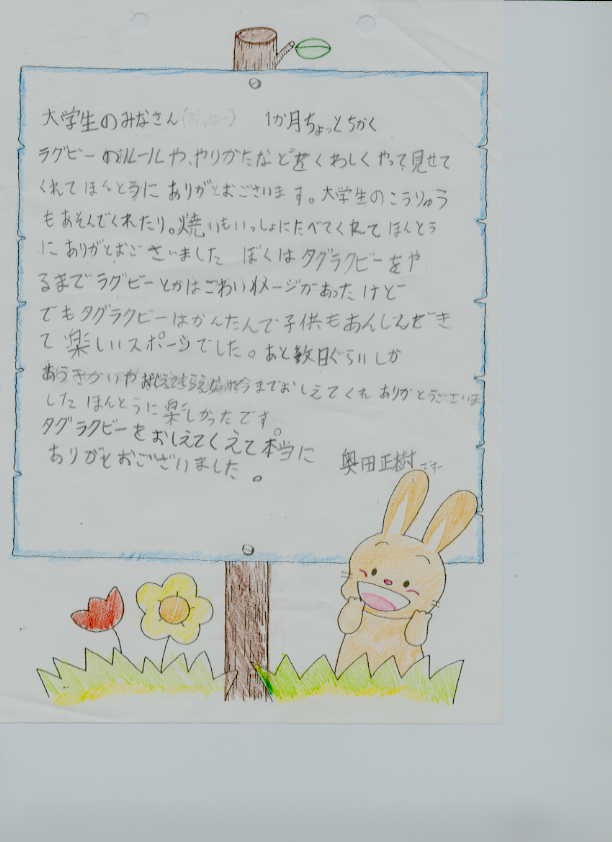 大学生のみなさん 1か月ちょっとちかく
ラグビーのルールや、やりかたなどをくわしくやって見せて
くれてほんとうにありがとおございます。大学生のこうりゅう
もあそんでくれたり。焼いもいっしょにたべてくれてほんとう
にありがとおございました ぼくはタグラクビーをや
るまでラグビーとかはこわいイメージがあったけど
でもタグラクビーはかんたんで子供もあんしんでき
て楽しいスポーツでした。あと数日ぐらいしか
今までおしえてくれ ありがとうございま
したほんとうに楽しかったです。
タグラクビーをおしえてくえて本当に
ありがとおございました。
奥田正樹